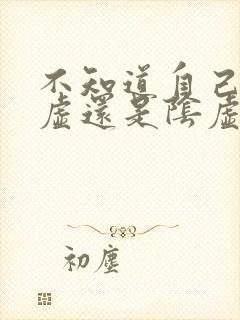 不知道自己
虛還是陰虛
初塵